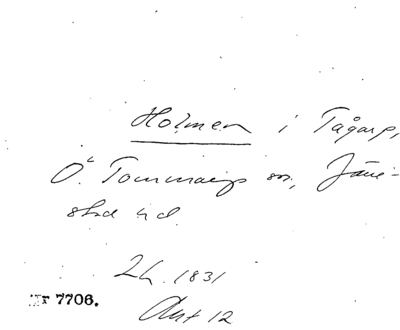 Holmen i Tågarp,
Ö. Tommarp sn, Järre-
stad hd.
Lh. 1831
Akt 12
Nr 7706.